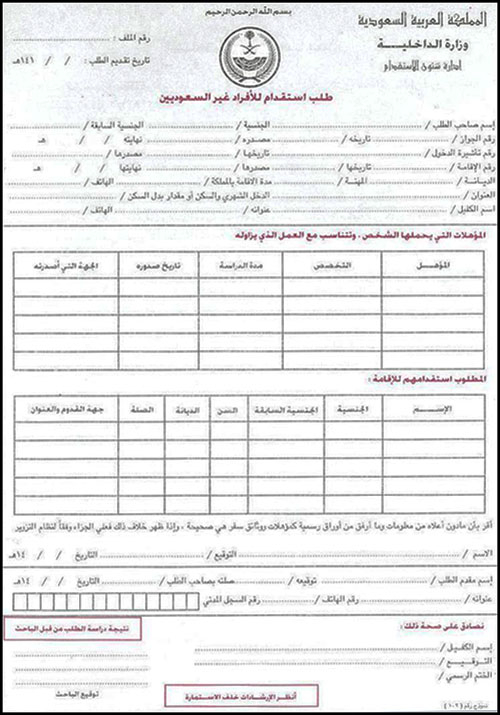 بسم الله الرحمن الرحيم
المملكة العربية السعودية
وزارة الداخلية
إدارة شئون الإستقدام
رقم الملف :
تاريخ تقديم الطلب : / / ١٤١هـ
طلب استقدام للأفراد غير السعوديين
إسم صاحب الطلب / الجنسية / الجنسية السابقة /
رقم الجواز / تاريخه / مصدره / نهايته / / هـ
رقم تأشيرة الدخول / تاريخها / مصدرها /
رقم الإقامة / تاريخها / مصدرها / نهايتها / / هـ
الديانة / المهنة / مدة الاقامة بالمملكة / الهاتف /
العنوان / الدخل الشهري والسكن أو مقدار بدل السكن /
اسم الكفيل / عنوانه / الهاتف /
المؤهلات التي يحملها الشخص ، وتتناسب مع العمل الذي يزاوله
المؤهل التخصص مدة الدراسة تاريخ صدوره الجهة التي أصدرته
المطلوب استقدامهم للإقامة :
الإسم الجنسية الجنسية السابقة السن الديانة الصلة جهة القدوم والعنوان
أقر بأن مادون أعلاه من معلومات وما أرفق من أوراق رسمية كمؤهلات ووثائق سفر هي صحيحة ، وإذا ظهر خلاف ذلك فعلي الجزاء وفقاً لنظام التزوير
الاسم / التوقيع / التاريخ / / ١٤هـ
إسم مقدم الطلب / توقيعه / صلته بصاحب الطلب / التاريخ / / ١٤هـ
عنوانه / رقم الهاتف / رقم السجل المدني
نصادق على صحة ذلك :
إسم الكفيل /
التوقيع /
الختم الرسمي /
نتيجة دراسة الطلب من قبل الباحث
توقيع الباحث
أنظر الإرشادات خلف الاستمارة
نموذج رقم (١٠٢)